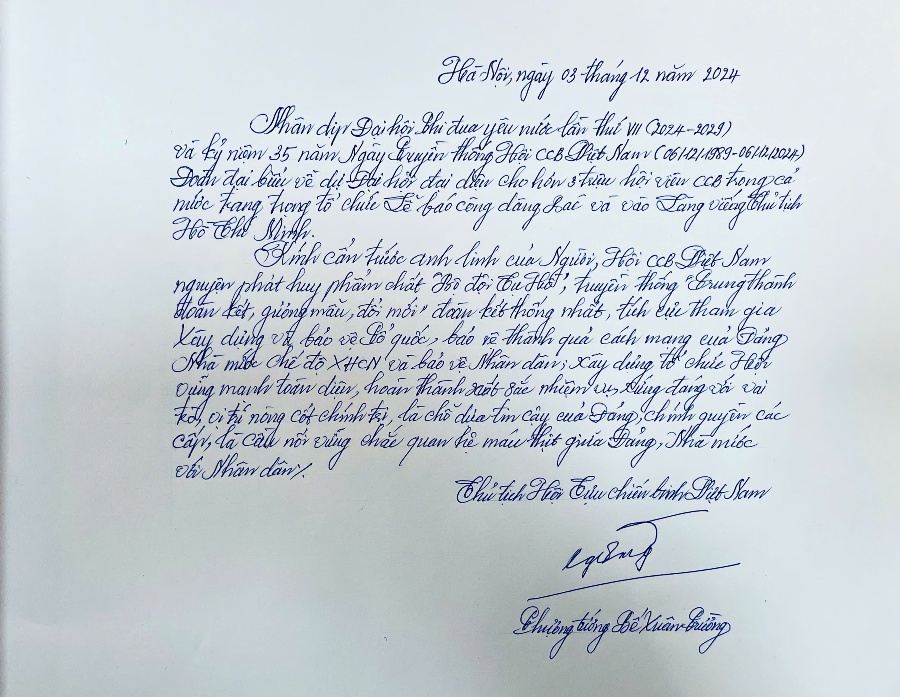 Hà Nội, ngày 03 tháng 12 năm 2024
Nhân dịp Đại hội Thi đua yêu nước lần thứ VII (2024-2029)
và kỷ niệm 35 năm Ngày Truyền thống Hội CCB Việt Nam (06/12/1989-06/12/2024)
Đoàn đại biểu về dự Đại hội đại diện cho hơn 3 triệu hội viên CCB trong cả
nước trang trọng tổ chức Lễ báo công dâng Bác và vào Lăng viếng Chủ tịch
Hồ Chí Minh.
Kính cẩn trước anh linh của Người, Hội CCB Việt Nam
nguyện phát huy phẩm chất "Bộ đội Cụ Hồ", truyền thống "Trung thành
đoàn kết, gương mẫu, đổi mới" đoàn kết thống nhất, tích cực tham gia
xây dựng và bảo vệ Tổ quốc, bảo vệ thành quả cách mạng của Đảng
Nhà nước chế độ XHCN và bảo vệ Nhân dân; xây dựng tổ chức Hội
vững mạnh toàn diện, hoàn thành xuất sắc nhiệm vụ, xứng đáng với vai
trò, vị trí nòng cốt chính trị, là chỗ dựa tin cậy của Đảng, chính quyền các
cấp, là cầu nối vững chắc quan hệ máu thịt giữa Đảng, Nhà nước
với Nhân dân./.
Chủ tịch Hội Cựu chiến binh Việt Nam
Thượng tướng Bế Xuân Trường